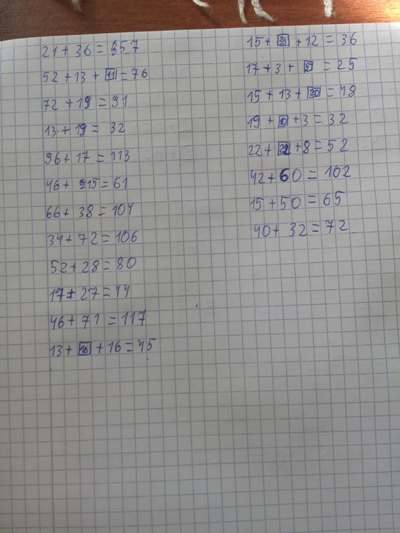 21 + 36 = 57
52 + 13 + 11 = 76
72 + 19 = 91
13 + 19 = 32
96 + 17 = 113
46 + 15 = 61
66 + 38 = 104
34 + 72 = 106
52 + 28 = 80
17 + 27 = 44
46 + 71 = 117
13 + 16 + 16 = 45
15 + 9 + 12 = 36
17 + 3 + 5 = 25
15 + 13 + 20 = 48
19 + + 3 = 32
22 + 22 + 8 = 52
42 + 60 = 102
15 + 50 = 65
40 + 32 = 72